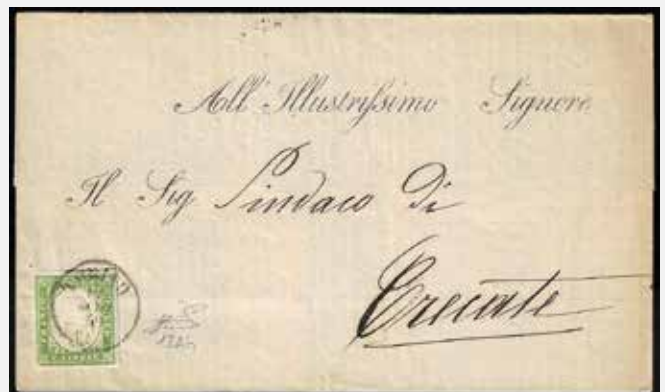 All' Illustrissimo Signore
Il Sig Sindaco Di
Trecate